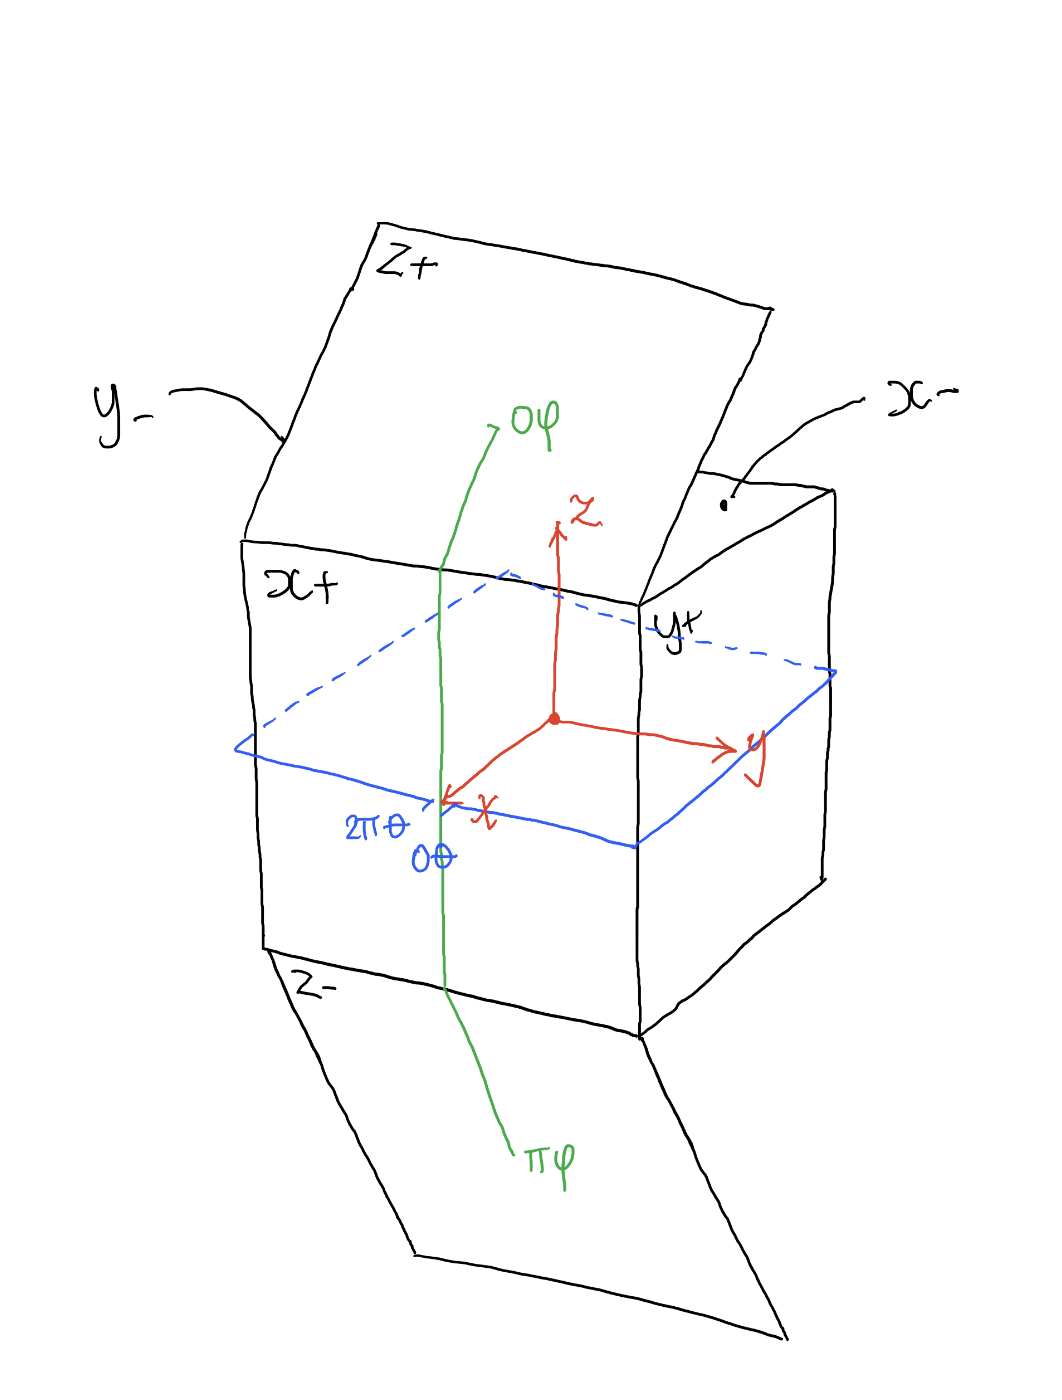 z+
y-
x-
0φ
z
x+
y+
y
x
2πθ
0θ
z-
πφ